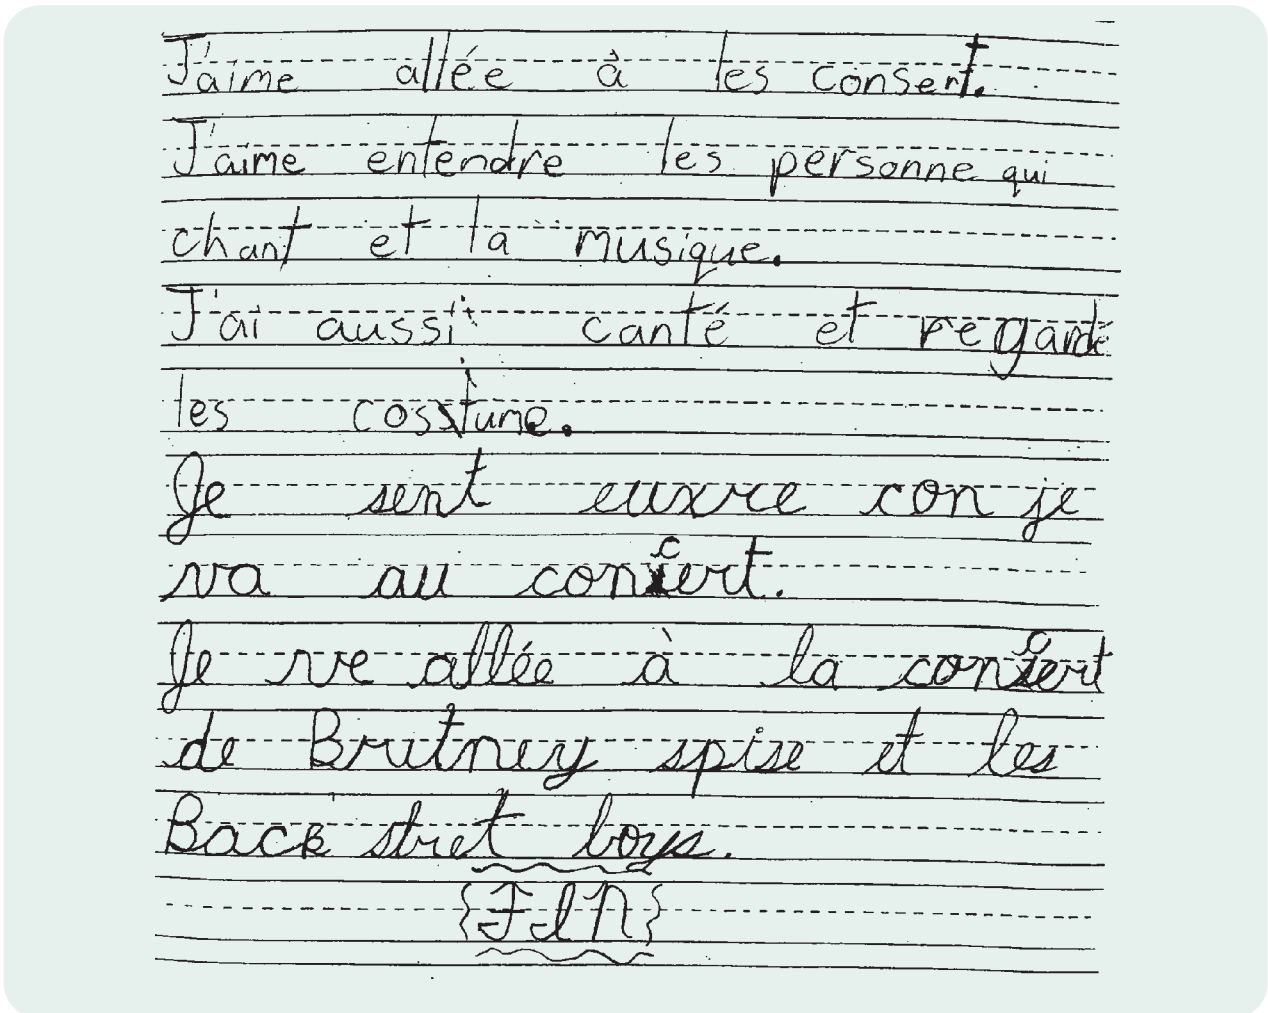 J'aime allée à les consert.
J'aime entendre les personne qui
chant et la musique.
J'ai aussi canté et regardé
les cosstume.
Je sent euxre con je
va au concert.
Je ve allée à la concert
de Britney spise et les
Back stret boys.
{FIN}